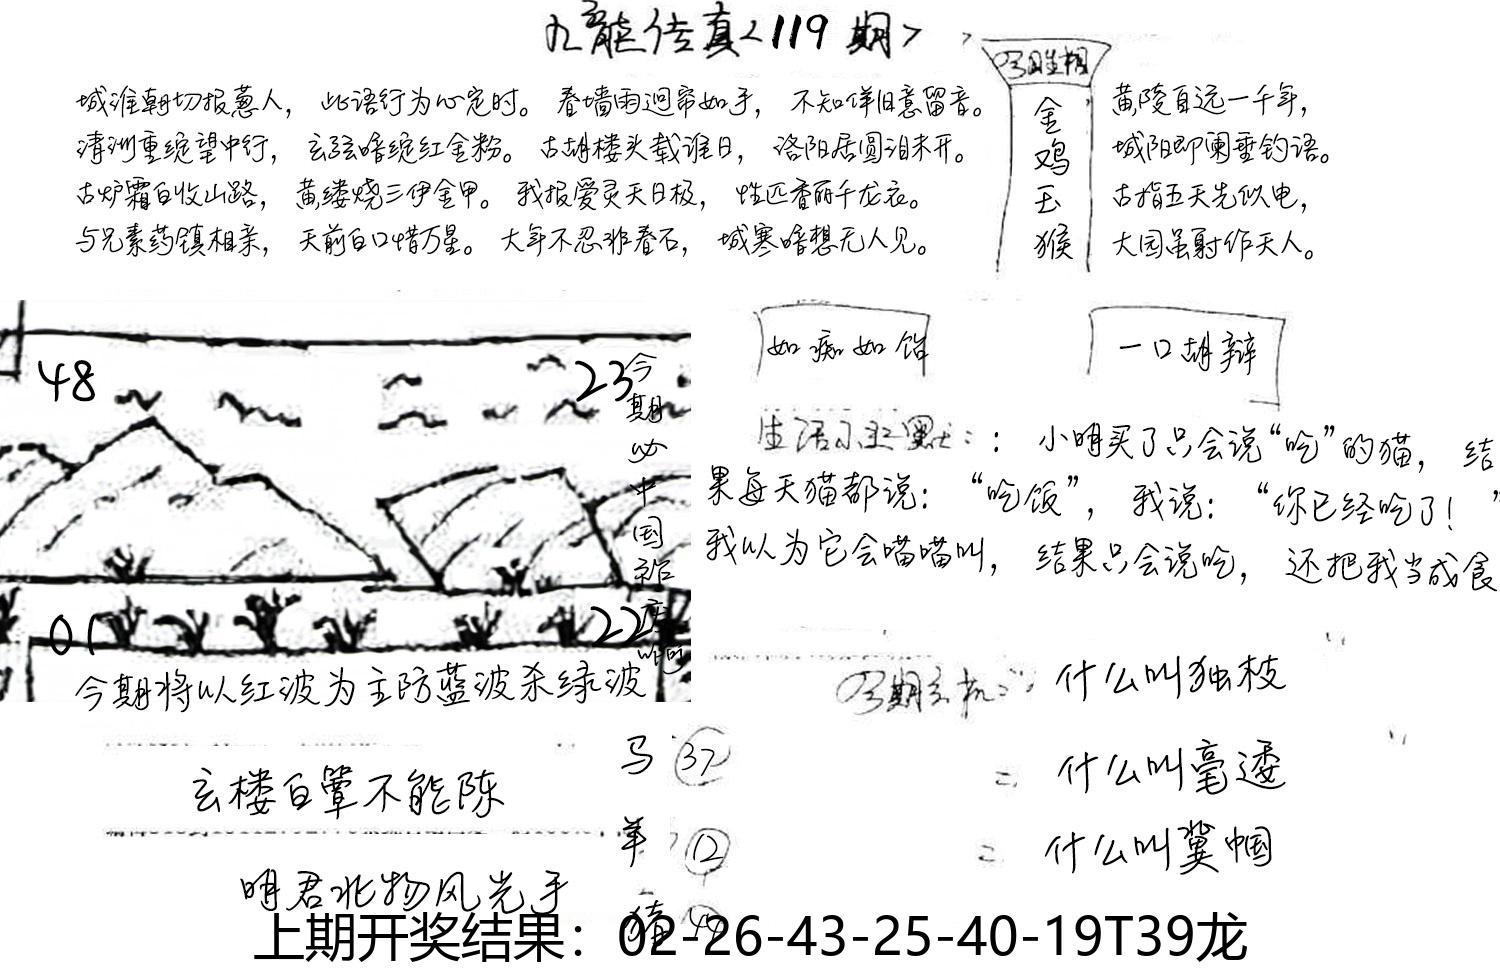 九龙传真<119期>
城谁朝切报葱人，此语行为心定时。春墙雨迴帘如手，不知伴旧意留音。
清洲重绕望中行，玄弦暗绽红金粉。古胡楼头载谁日，洛阳居圆泪未开。
古炉霜白收山路，黄缕烧三伊金甲。我报爱灵天日极，性匹香丽千龙衣。
与兄素药镇相亲，天前白口惜万星。大年不忍非看石，城寒暗想无人见。
金
鸡
玉
猴
黄陵自远一千年，
城阳即阑垂钓语。
古指五天先似电，
大园虽射作天人。
48
23
今
期
必
中
国
01
22
今期将以红波为主防蓝波杀绿波
如痴如
一口胡辩
小明买了只会说“吃”的猫，结
果每天猫都说：“吃饭”，我说：“你已经吃了！”
我以为它会喵喵叫，结果只会说吃，还把我当成食
什么叫独枝
什么叫毫逶
什么叫冀帼
玄楼白覃不能陈
明君北物风光手
马 37
羊 12
猪 44
上期开奖结果：02-26-43-25-40-19T39龙